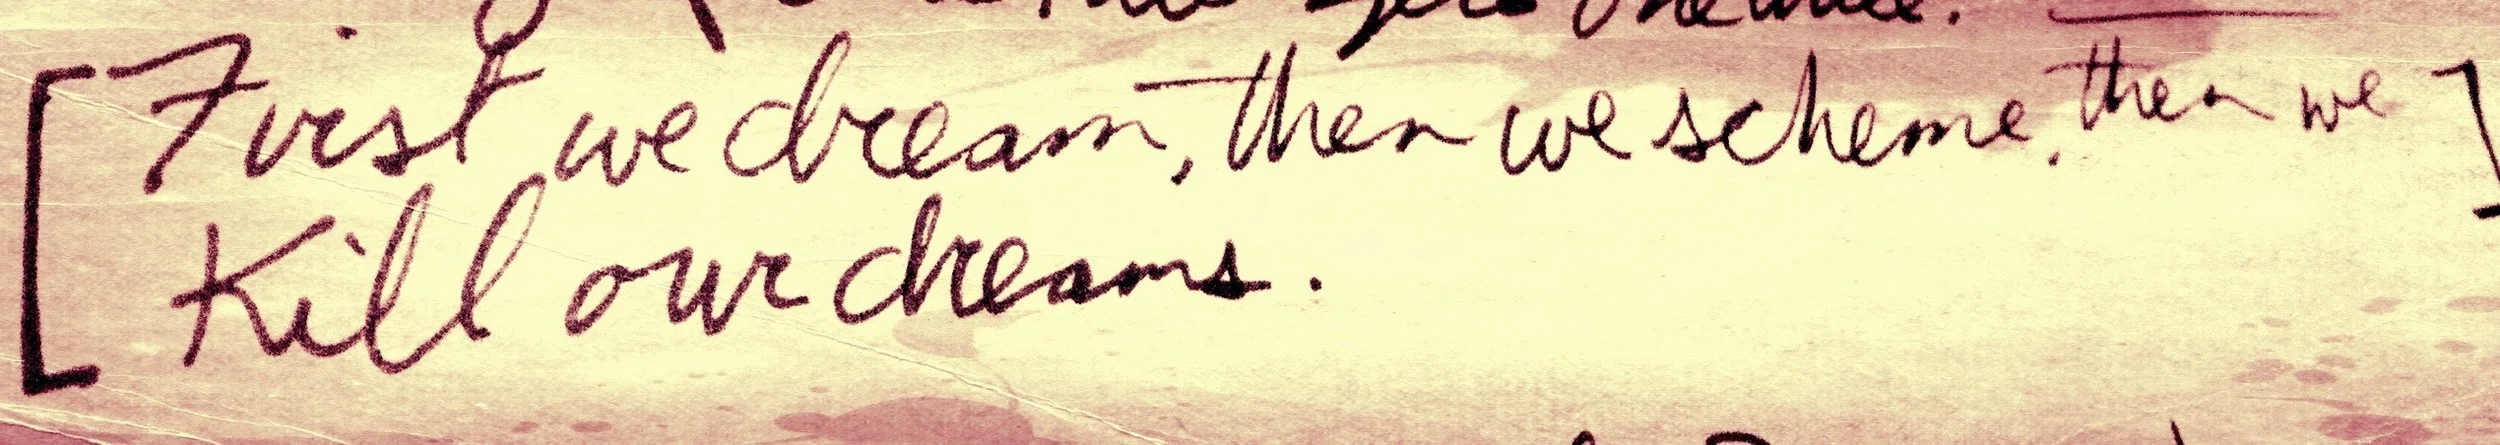 [First we dream, then we scheme. then we]
Kill our dreams.